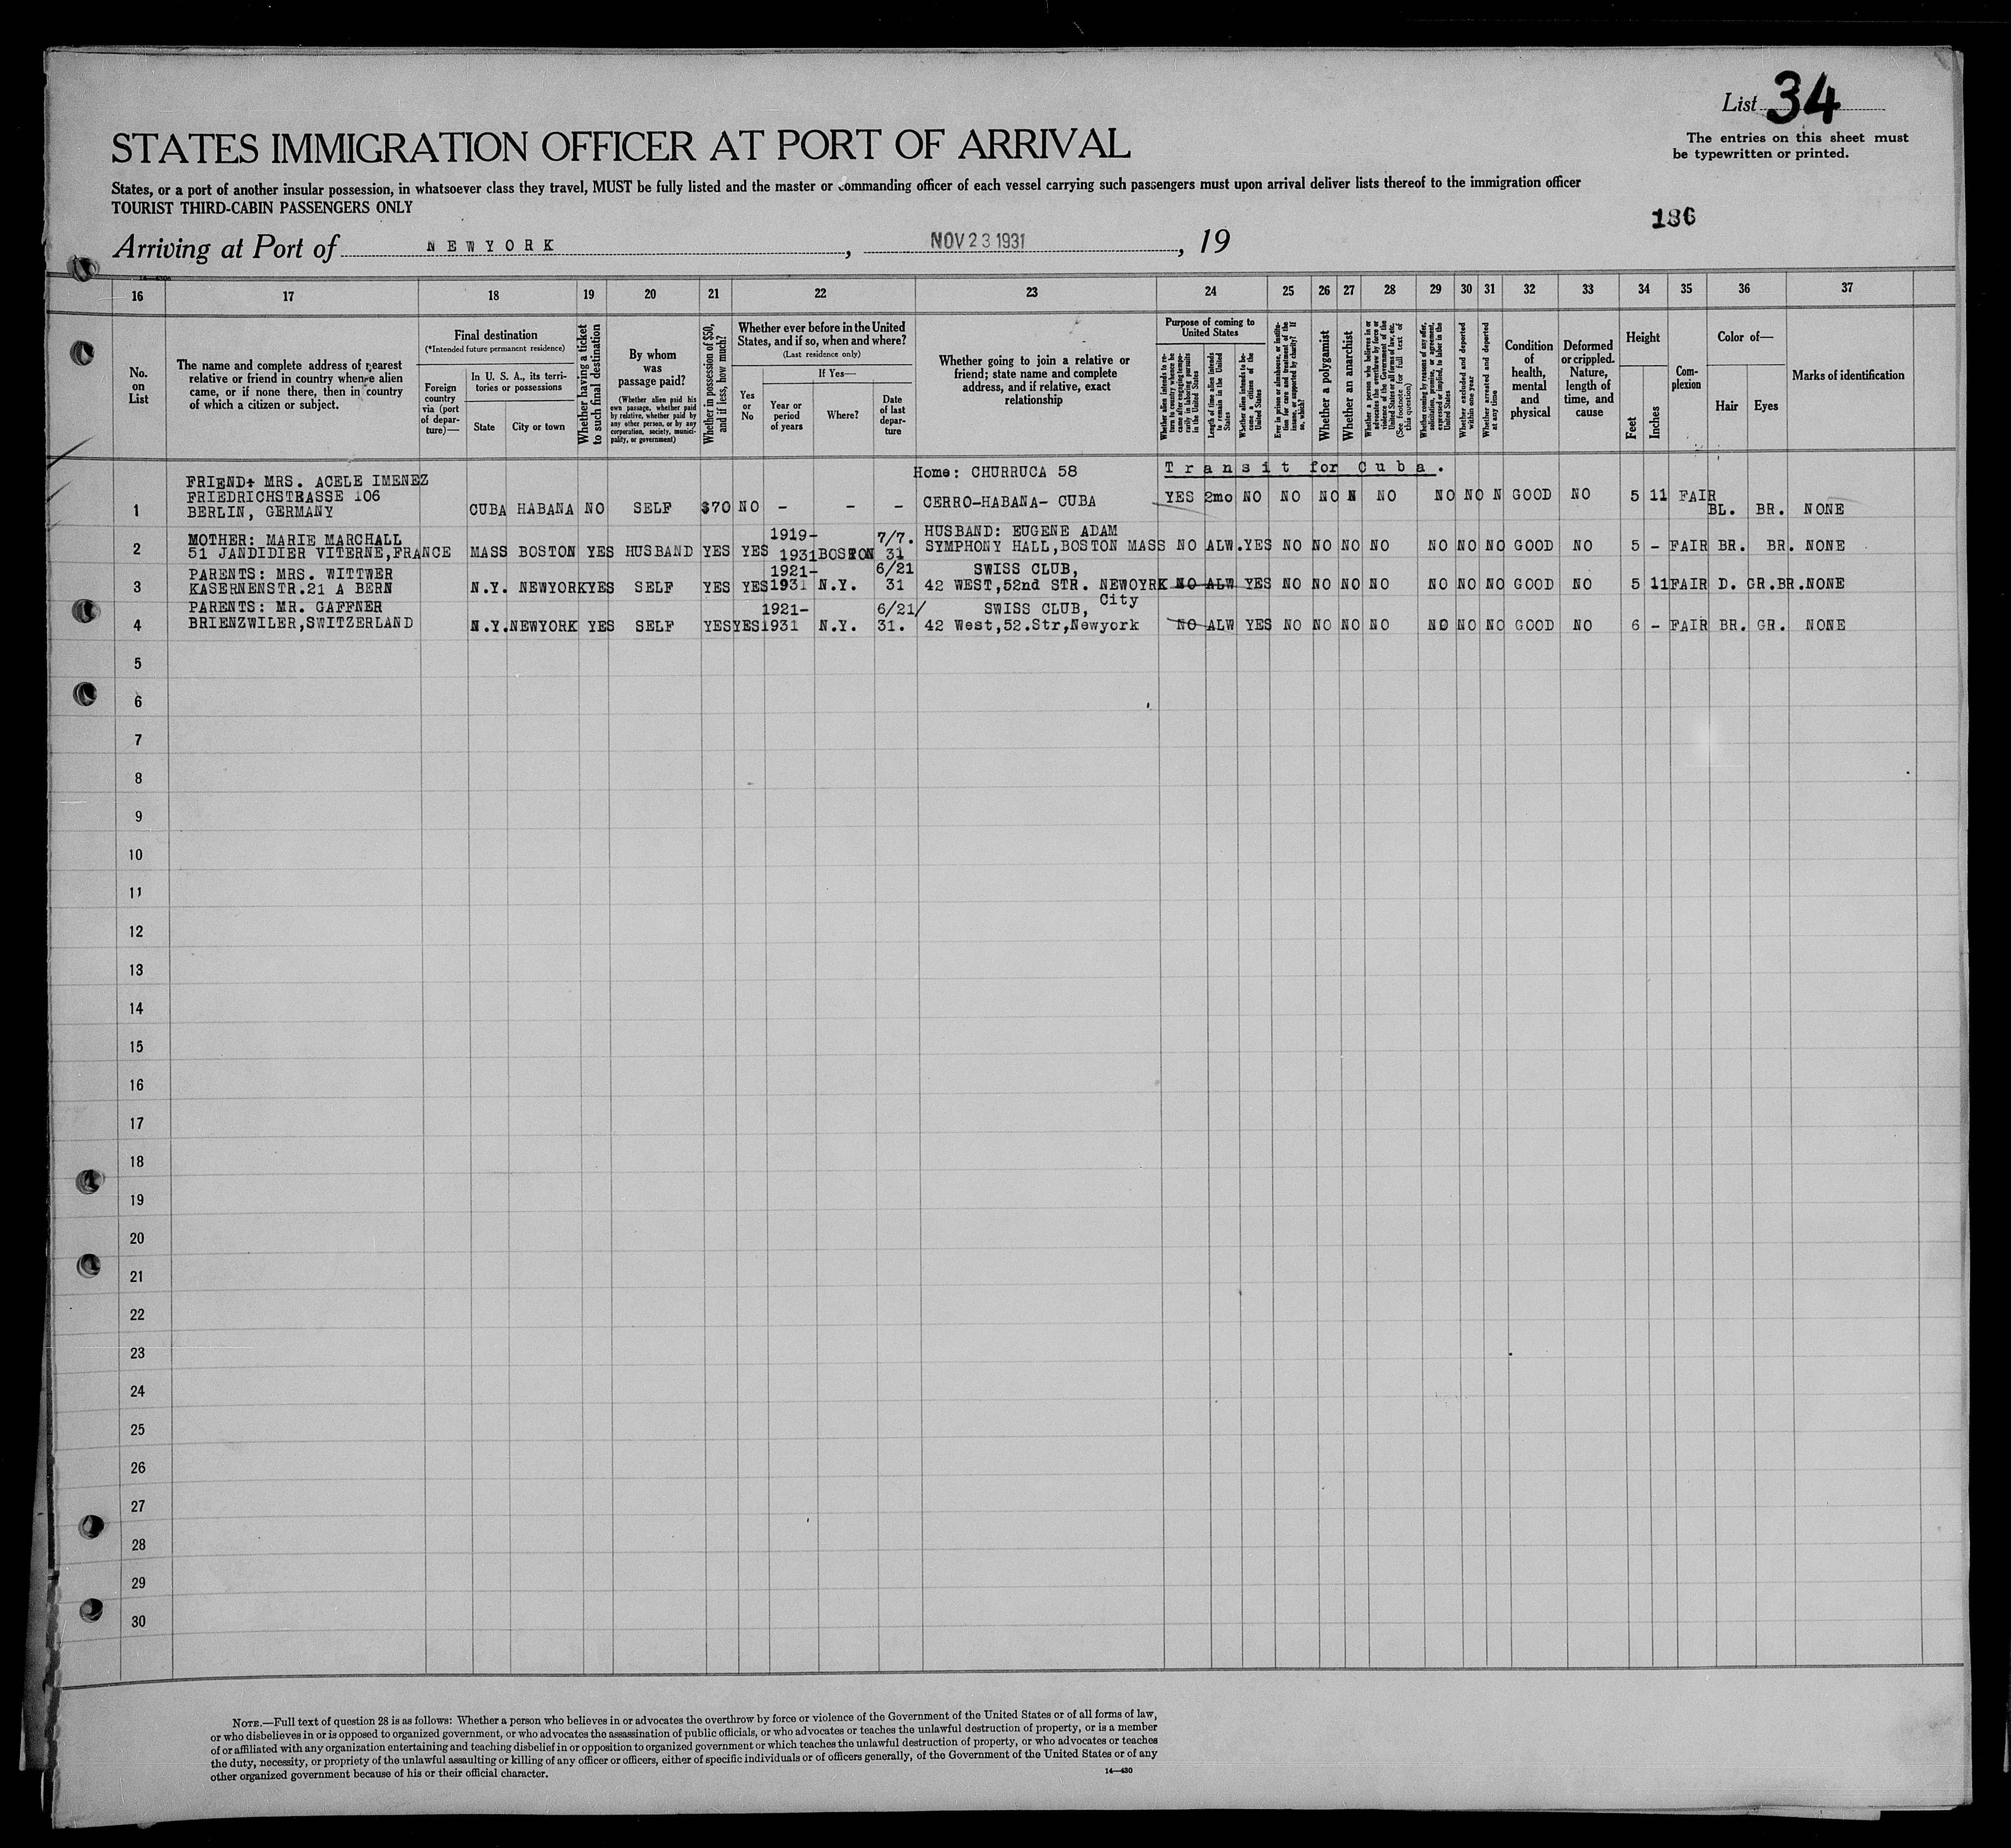 List 34
The entries on this sheet must
be typewritten or printed.
STATES IMMIGRATION OFFICER AT PORT OF ARRIVAL
States, or a port of another insular possession, in whatsoever class they travel, MUST be fully listed and the master or commanding officer of each vessel carrying such passengers must upon arrival deliver lists thereof to the immigration officer
TOURIST THIRD-CABIN PASSENGERS ONLY
186
Arriving at Port of NEWYORK, NOV 23 1931, 19
16 17 18 19 20 21 22 23 24 25 26 27 28 29 30 31 32 33 34 35 36 37
No. on List
The name and complete address of nearest
relative or friend in country whence alien
came, or if none there, then in country
of which a citizen or subject.
Final destination
(*Intended future permanent residence)
Foreign country via (port of departure)—
In U. S. A., its territories or possessions
State
City or town
Whether having a ticket to such final destination
By whom was passage paid?
(Whether alien paid his own passage, whether paid by relative, whether paid by any other person, or by any corporation, society, municipality, or government)
Whether in possession of $50, and if less, how much?
Whether ever before in the United
States, and if so, when and where?
(Last residence only)
Yes or No
If Yes—
Year or period of years
Where?
Date of last departure
Whether going to join a relative or
friend; state name and complete
address, and if relative, exact
relationship
Purpose of coming to United States
Whether alien intends to return to country whence he came after engaging temporarily in laboring pursuits in the United States
Length of time alien intends to remain in the United States
Whether alien intends to become a citizen of the United States
Ever in prison or almshouse, or institution for care and treatment of the insane, or supported by charity? If so, which?
Whether a polygamist
Whether an anarchist
Whether a person who believes in or advocates the overthrow by force or violence of the Government of the United States or all forms of law, etc. (See footnote for full text of this question)
Whether coming by reasons of any offer, solicitation, promise, or agreement, expressed or implied, to labor in the United States
Whether excluded and deported within one year
Whether arrested and deported at any time
Condition of health, mental and physical
Deformed or crippled. Nature, length of time, and cause
Height
Feet
Inches
Complexion
Color of—
Hair
Eyes
Marks of identification
Home: CHURRUCA 58 Transit for Cuba.
FRIEND+ MRS. ACELE IMENEZ
FRIEDRICHSTRASSE 106 CERRO-HABANA- CUBA YES 2mo NO NO NO N NO NO NO N GOOD NO 5 11 FAIR
1 BERLIN, GERMANY CUBA HABANA NO SELF $70 NO - - - BL. BR. NONE
MOTHER: MARIE MARCHALL 1919- 7/7. HUSBAND: EUGENE ADAM
2 51 JANDIDIER VITERNE,FRANCE MASS BOSTON YES HUSBAND YES YES 1931 BOSTON 31 SYMPHONY HALL,BOSTON MASS NO ALW.YES NO NO NO NO NO NO NO GOOD NO 5 - FAIR BR. BR. NONE
PARENTS: MRS. WITTWER 1921- 6/21 SWISS CLUB,
3 KASERNENSTR.21 A BERN N.Y. NEWYORK YES SELF YES YES 1931 N.Y. 31 42 WEST,52nd STR. NEWOYRK NO ALW YES NO NO NO NO NO NO NO GOOD NO 5 11 FAIR D. GR.BR.NONE
PARENTS: MR. GAFFNER 1921- 6/21/ SWISS CLUB, City
4 BRIENZWILER,SWITZERLAND N.Y.NEWYORK YES SELF YES YES 1931 N.Y. 31. 42 West,52.Str,Newyork NO ALW YES NO NO NO NO NO NO NO GOOD NO 6 - FAIR BR. GR. NONE
5
6
7
8
9
10
11
12
13
14
15
16
17
18
19
20
21
22
23
24
25
26
27
28
29
30
NOTE.—Full text of question 28 is as follows: Whether a person who believes in or advocates the overthrow by force or violence of the Government of the United States or of all forms of law,
or who disbelieves in or is opposed to organized government, or who advocates the assassination of public officials, or who advocates or teaches the unlawful destruction of property, or is a member
of or affiliated with any organization entertaining and teaching disbelief in or opposition to organized government or which teaches the unlawful destruction of property, or who advocates or teaches
the duty, necessity, or propriety of the unlawful assaulting or killing of any officer or officers, either of specific individuals or of officers generally, of the Government of the United States or of any
other organized government because of his or their official character.
14—430